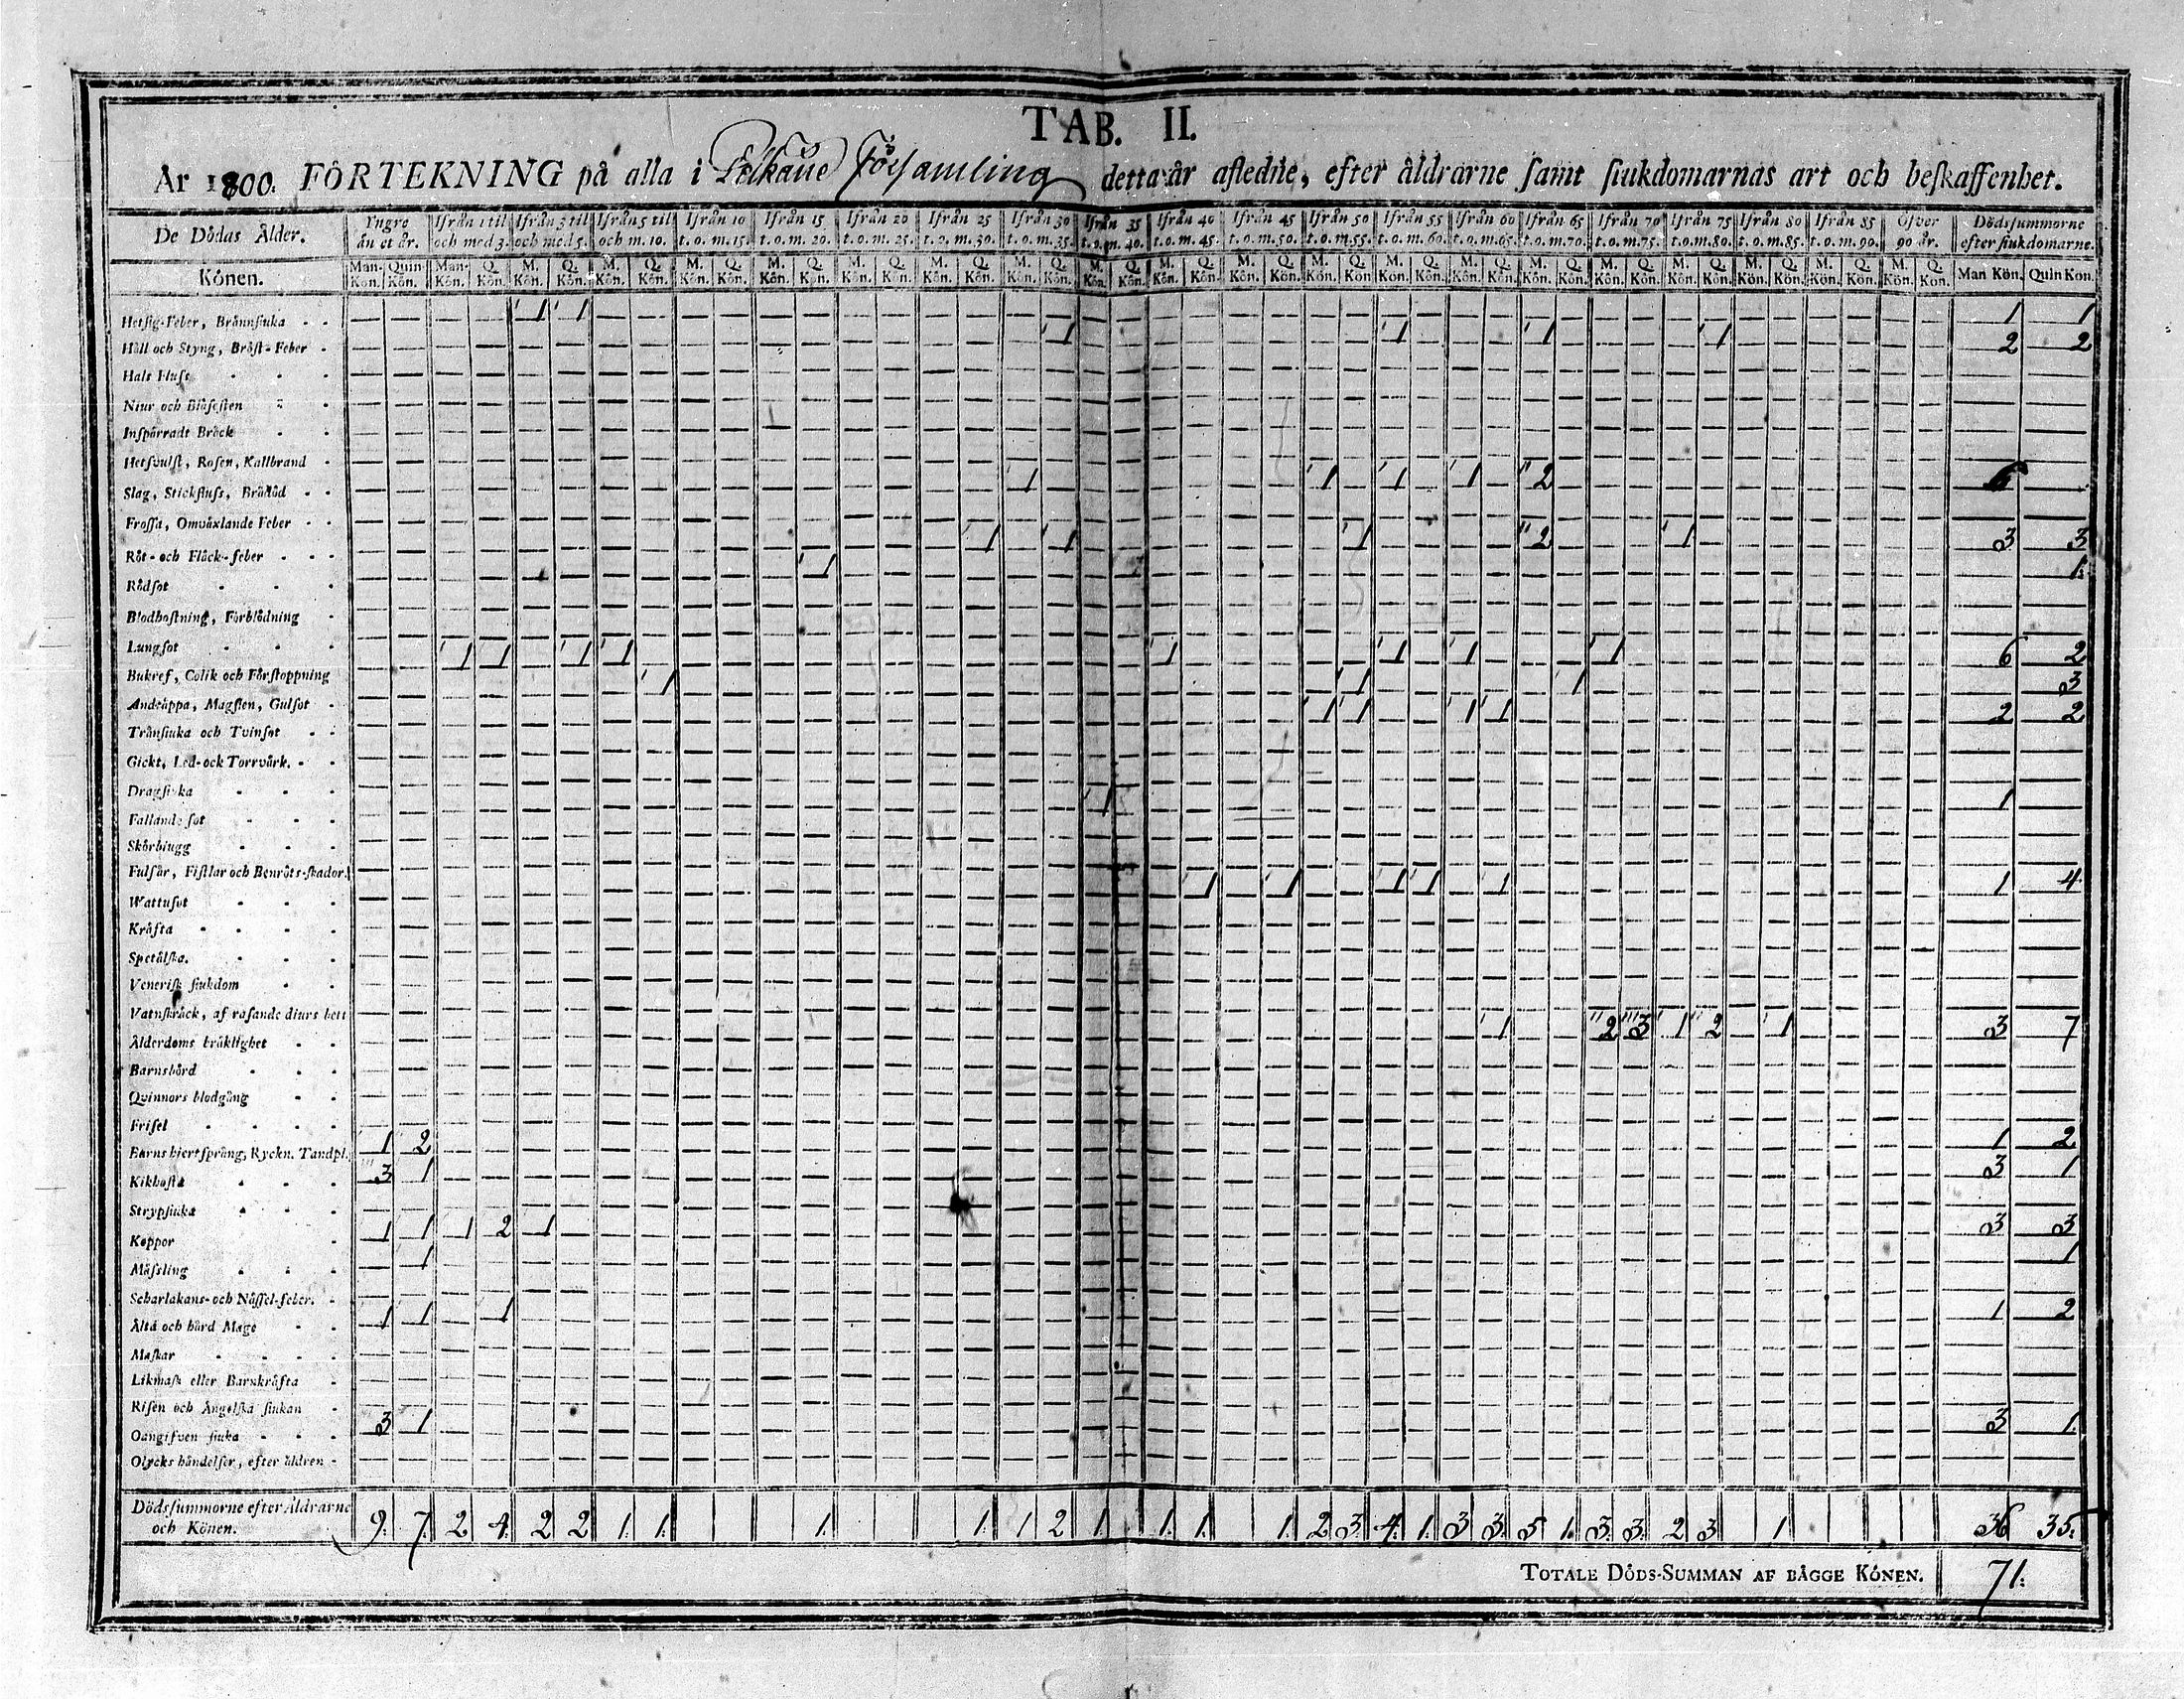 TAB. II.
År 1800. FÖRTEKNING på alla i Pelkäne Församling detta år afledne, efter åldrarne samt siukdomarnas art och beskaffenhet.
De Dödas Ålder. Yngre än et år. Ifrån 1 til och med 3. Ifrån 3 til och med 5. Ifrån 5 til och m. 10. Ifrån 10 t. o. m. 15. Ifrån 15 t. o. m. 20. Ifrån 20 t. o. m. 25. Ifrån 25 t. o. m. 30. Ifrån 30 t. o. m. 35. Ifrån 35 t. o. m. 40. Ifrån 40 t. o. m. 45. Ifrån 45 t. o. m. 50. Ifrån 50 t. o. m. 55. Ifrån 55 t. o. m. 60. Ifrån 60 t. o. m. 65. Ifrån 65 t. o. m. 70. Ifrån 70 t. o. m. 75. Ifrån 75 t. o. m. 80. Ifrån 80 t. o. m. 85. Ifrån 85 t. o. m. 90. Öfver 90 år. Dödssummorne efter siukdomarne.
Könen. Man-Kön. Quin Kön. Man-Kön. Q. Kön. M. Kön. Q. Kön. M. Kön. Q. Kön. M. Kön. Q. Kön. M. Kön. Q. Kön. M. Kön. Q. Kön. M. Kön. Q. Kön. M. Kön. Q. Kön. M. Kön. Q. Kön. M. Kön. Q. Kön. M. Kön. Q. Kön. M. Kön. Q. Kön. M. Kön. Q. Kön. M. Kön. Q. Kön. M. Kön. Q. Kön. M. Kön. Q. Kön. M. Kön. Q. Kön. M. Kön. Q. Kön. M. Kön. Q. Kön. M. Kön. Q. Kön. Man Kön. Quin Kon.
Hetsig-Feber, Brännsiuka 1 1 1 1
Håll och Styng, Bröst-Feber 1 1 1 1 2 2
Hals Fluss
Niur och Blåsesten
Inspärradt Bråck
Hetsvulst, Rosen, Kallbrand
Slag, Stickfluss, Brådöd 1 1 1 1 2 6
Frossa, Omväxlande Feber
Röt- och Fläck-feber 1 1 1 2 1 3 3
Rödsot 1 1.
Blodhostning, Förblödning
Lungsot 1 1 1 1 1 1 1 1 6 2
Bukref, Colik och Förstoppning 1 1 1 3
Andtäppa, Magsten, Gulsot 1 1 1 1 2 2
Trånsiuka och Tvinsot
Gickt, Led- ock Torrvärk.
Dragsiuka 1 1
Fallande sot
Skörbiugg
Fulsår, Fistlar och Benröts-skador.
Wattusot 1 1 1 1 1 1 4
Kräfta
Spetälska.
Venerisk siukdom
Vatnskräck, af rasande diurs bett
Ålderdoms bräklighet 1 2 3 1 2 1 3 7
Barnsbörd
Quinnors blodgång
Frisel
Barns hiertsprång, Ryckn. Tandpl. 1 2 1 2
Kikhosta 3 1 3 1
Strypsiuka
Koppor 1 1 1 2 1 3 3
Mässling 1 1
Scharlakans- och Nässel-feber.
Ältå och hård Mage 1 1 1 1 2
Maskar
Likmask eller Barnkräfta
Risen och Ängelska siukan
Oangifven siuka 3 1 3 1.
Olycks händelser, efter äldren
Dödssummorne efter Åldrarne och Könen. 9. 7. 2 4. 2 2 1. 1. 1. 1. 1 2 1. 1. 1. 1. 2 3. 4. 1. 3 3. 5 1. 3. 3. 2 3. 1 36 35.
TOTALE DÖDS-SUMMAN AF BÄGGE KÖNEN. 71.